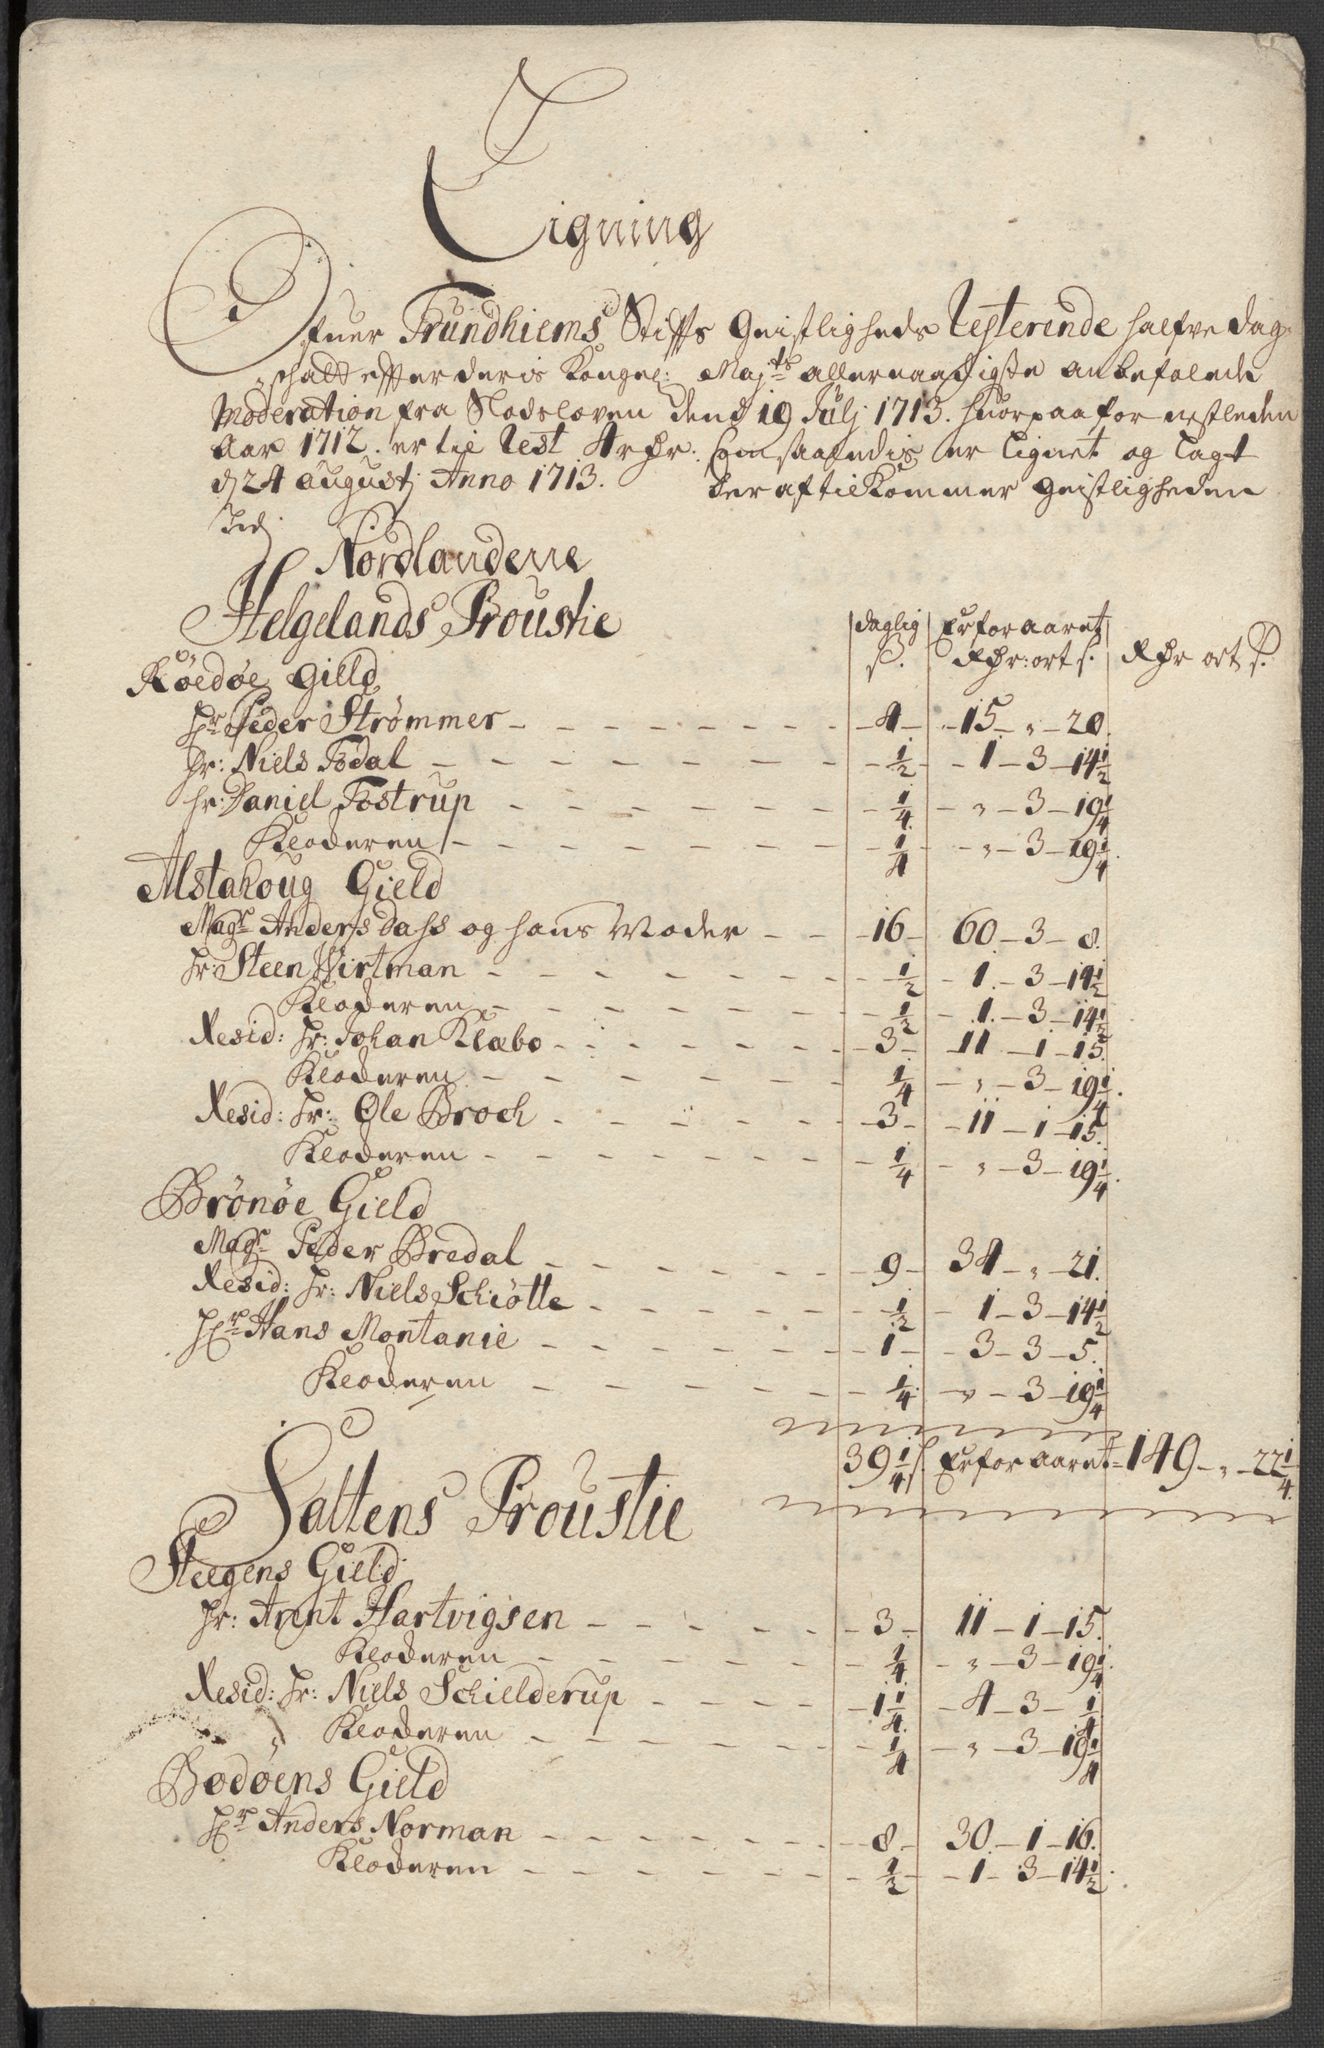 Ligning
Ofuer Trundhiems Stiffts Geistligheds Resterende halfve dag-
schatt effter deris Kongel: Majts allernaadigste anbefalede
Moderation fra Slodsloven dend 19 Julj 1713. huorpaa for nestleden
Aar 1712. er til Rest 4 rdr: som saaledis er Lignet og Lagt
d 24 Augustj Anno 1713. der aftilkommer geistligheden
Ved
Nordlandene
Helgelands Proustie daglig Er for aaret
Röedøe Gield s. Rdr: ort s. Rdr ort s.
Hr Peder Strømmer - 4 - 15 - " - 20.
Hr: Niels Fodal - 1/2 - 1 - 3 - 14 1/2
hr Daniel Tostrup - 1/4 - " - 3 - 19 1/4
Klockeren - 1/4 - " - 3 - 19 1/4.
Alstahoug Gield
Magr Anders Dahs og hans Moder - 16 - 60 - 3 - 8.
Hr: Steen Wirtman - 1/2 - 1. - 3 - 14 1/2
Klockeren - 1/2 - 1. - 3 - 14 1/2
Resid: Hr: Johan Klæbo - 3 - 11 - 1 - 15.
Klockeren - 1/4 - " - 3 - 19 1/4.
Resid: Hr: Ole Broch - 3 - 11 - 1 - 15.
Klockeren - 1/4 - " - 3 - 19 1/4.
Brönöe Gield
Magr Peder Bredal - 9 - 34 - " - 21.
Resid: Hr: Niels Schiötte - 1/2 - 1 - 3 - 14 1/2
Hr Hans Montanie - 1 - 3 - 3 - 5.
Klockeren - 1/4 - " - 3 - 19 1/4
39 1/4 s Er for aaret - 149 - " - 22 1/4.
Saltens Proustie
Steegens Gield
Hr: Arent Hartvigsen - 3 - 11 - 1 - 15.
Klockeren - 1/4 - " - 3 - 19 1/4.
Resid: Hr: Niels Schielderup - 1 1/4. - 4 - 3 - 1/4
Klockeren - 1/4 - " - 3 - 19 1/4
Bodøens Gield
Hr Anders Norman - 8 - 30 - 1 - 16.
Klockeren - 1/2 - 1 - 3 - 14 1/2.